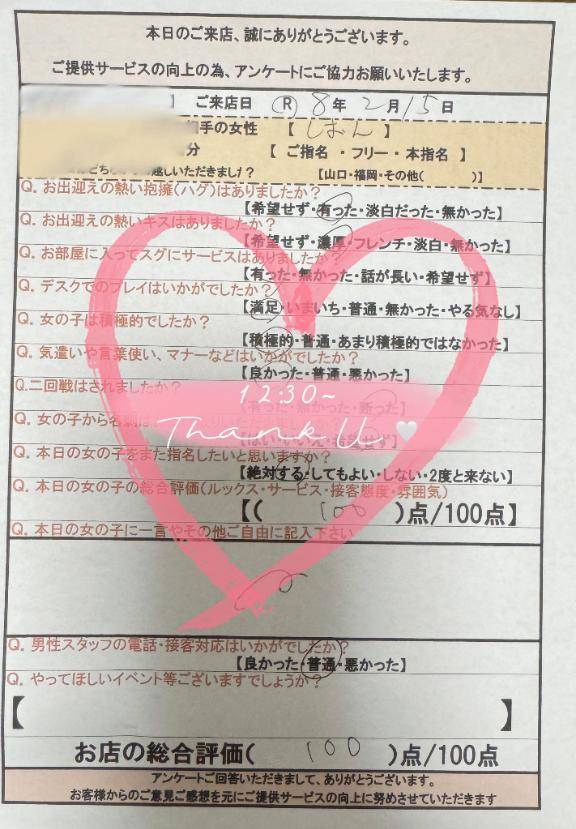 本日のご来店、誠にありがとうございます。
ご提供サービスの向上の為、アンケートにご協力お願いいたします。
】 ご来店日 (R) 8年 2月 15日
相手の女性 【 しおん 】
分 【 ご指名 ・ フリー ・ 本指名 】
越しいただきました? 【山口・福岡・その他( )】
Q. お出迎えの熱い抱擁(ハグ)はありましたか?
【希望せず・有った・淡白だった・無かった】
Q. お出迎えの熱いキスはありましたか?
【希望せず・濃厚・フレンチ・淡白・無かった】
Q. お部屋に入ってスグにサービスはありましたか?
【有った・無かった・話が長い・希望せず】
Q. デスクでのプレイはいかがでしたか?
【満足・いまいち・普通・無かった・やる気なし】
Q. 女の子は積極的でしたか?
【積極的・普通・あまり積極的ではなかった】
Q. 気遣いや言葉使い、マナーなどはいかがでしたか?
【良かった・普通・悪かった】
Q.二回戦はされましたか?
12:30~
【有った・無かった・断った】
Q. 女の子から名刺は
Thank U 🤍
【はい・いいえ・希望せず】
Q. 本日の女の子をまた指名したいと思いますか?
【絶対する・してもよい・しない・2度と来ない】
Q. 本日の女の子の総合評価(ルックス・サービス・接客態度・雰囲気)
【( 100 )点/100点】
Q. 本日の女の子に一言やその他ご自由に記入下さい
Q. 男性スタッフの電話・接客対応はいかがでしたか?
【良かった・普通・悪かった】
Q. やってほしいイベント等ございますでしょうか?
【 】
お店の総合評価( 100 )点/100点
アンケートご回答いただきまして、ありがとうございます。
お客様からのご意見ご感想を元にご提供サービスの向上に努めさせていただきます